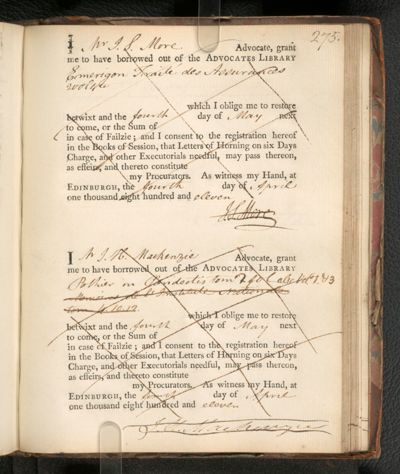 275.
I Mr J. S. More Advocate, grant
me to have borrowed out of the ADVOCATES LIBRARY
Emerigon Traité des Assurances
2 vol 4to
which I oblige me to restore
betwixt and the fourth day of May next
to come, or the Sum of
in case of Failzie; and I consent to the registration hereof
in the Books of Session, that Letters of Horning on six Days
Charge, and other Executorials needful, may pass thereon,
as effeirs, and thereto constitute
my Procurators. As witness my Hand, at
EDINBURGH, the fourth day of April
one thousand eight hundred and eleven
J. S. More
I Mr J. H. Mackenzie Advocate, grant
me to have borrowed out of the ADVOCATES LIBRARY
Pothier in Pandectis tom
Institute Nationale
which I oblige me to restore
betwixt and the fourth day of May next
to come, or the Sum of
in case of Failzie; and I consent to the registration hereof
in the Books of Session, that Letters of Horning on six Days
Charge, and other Executorials needful, may pass thereon,
as effeirs, and thereto constitute
my Procurators. As witness my Hand, at
EDINBURGH, the fourth day of April
one thousand eight hundred and eleven
J. H. Mackenzie